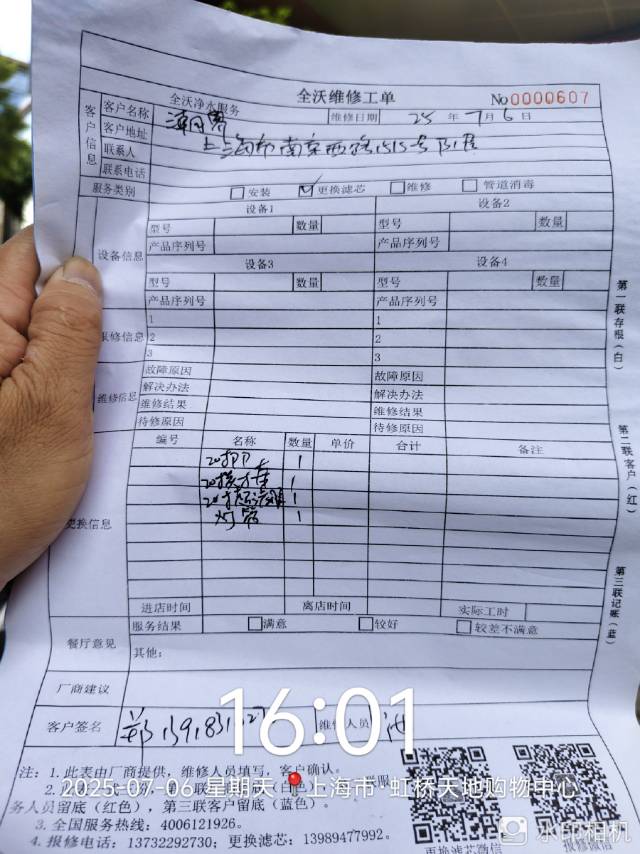 全沃净水服务 全沃维修工单 No0000607
客户信息 客户名称 维修日期 25 年 7 月 6 日
客户地址 上海市南京西路1515号B1层
联系人
联系电话
服务类别 安装 更换滤芯 维修 管道消毒
设备信息 设备1 设备2
型号 数量 型号 数量
产品序列号 产品序列号
设备3 设备4
型号 数量 型号 数量
产品序列号 产品序列号
报修信息 1 1
2 2
3 3
维修信息 故障原因 故障原因
解决办法 解决办法
维修结果 维修结果
待修原因 待修原因
更换信息 编号 名称 数量 单价 合计 备注
20寸PP 1
1
1
灯管 1
进店时间 离店时间 实际工时
餐厅意见 服务结果 满意 较好 较差不满意
其他:
厂商建议
客户签名 郑 维修人员
第一联存根(白)
第二联客户(红)
第三联记账(蓝)
注: 1. 此表由厂商提供, 维修人员填写, 客户确认。
务人员留底(红色), 第三联客户留底(蓝色)。
3. 全国服务热线: 4006121926
4. 报修电话: 13732292730; 更换滤芯: 13989477992.
更换滤芯微信 报修微信
16:01
2025-07-06 星期天 上海市·虹桥天地购物中心
水印相机